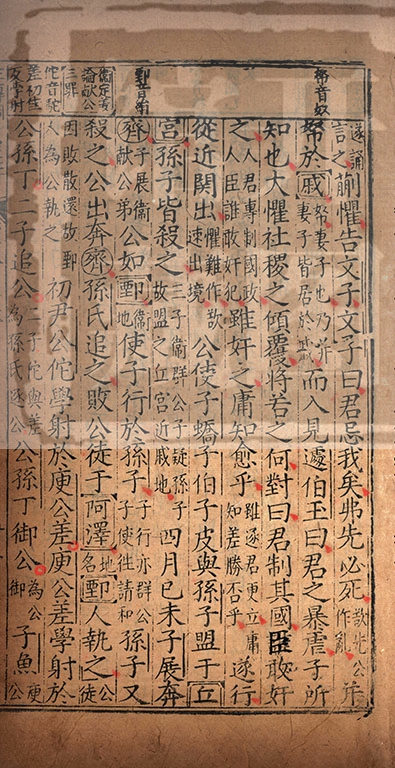 帑音奴
遂誦言之蒯懼告文子文子曰君忌我矣弗先必死欲先公作亂并
帑於戚帑妻子也乃并妻子皆居於戚而入見蘧伯玉曰君之暴虐子所
知也大懼社稷之傾覆將若之何對曰君制其國臣敢奸
之人君專制國政人臣誰敢奸犯雖奸之庸知愈乎雖逐君更立庸知差勝否乎遂行
從近関出懼難作欲速出境公使子蟜子伯子皮與孫子盟于丘
宮孫子皆殺之三子衛群公子疑孫子故盟之丘宮近戚地四月已未子展奔
齊子展衛獻公弟公如鄄衛地使子行於孫子子行亦群公子使徃請和孫子又
殺之公出奔齊孫氏追之敗公徒于阿澤地名鄄人執之公徒
因敗散還故鄄人為公執之初尹公佗學射於庾公差庾公差學射於
公孫丁二子追公二子佗與差為孫氏逐公公孫丁御公為公御子魚庾公
衛定姜論獻公三罪
佗音駝